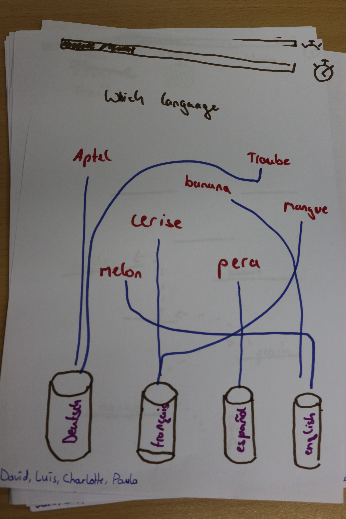 Which language
Apfel
Traube
banana
mangue
cerise
melon
pera
Deutsch
français
español
english
David, Luis, Charlotte, Paula